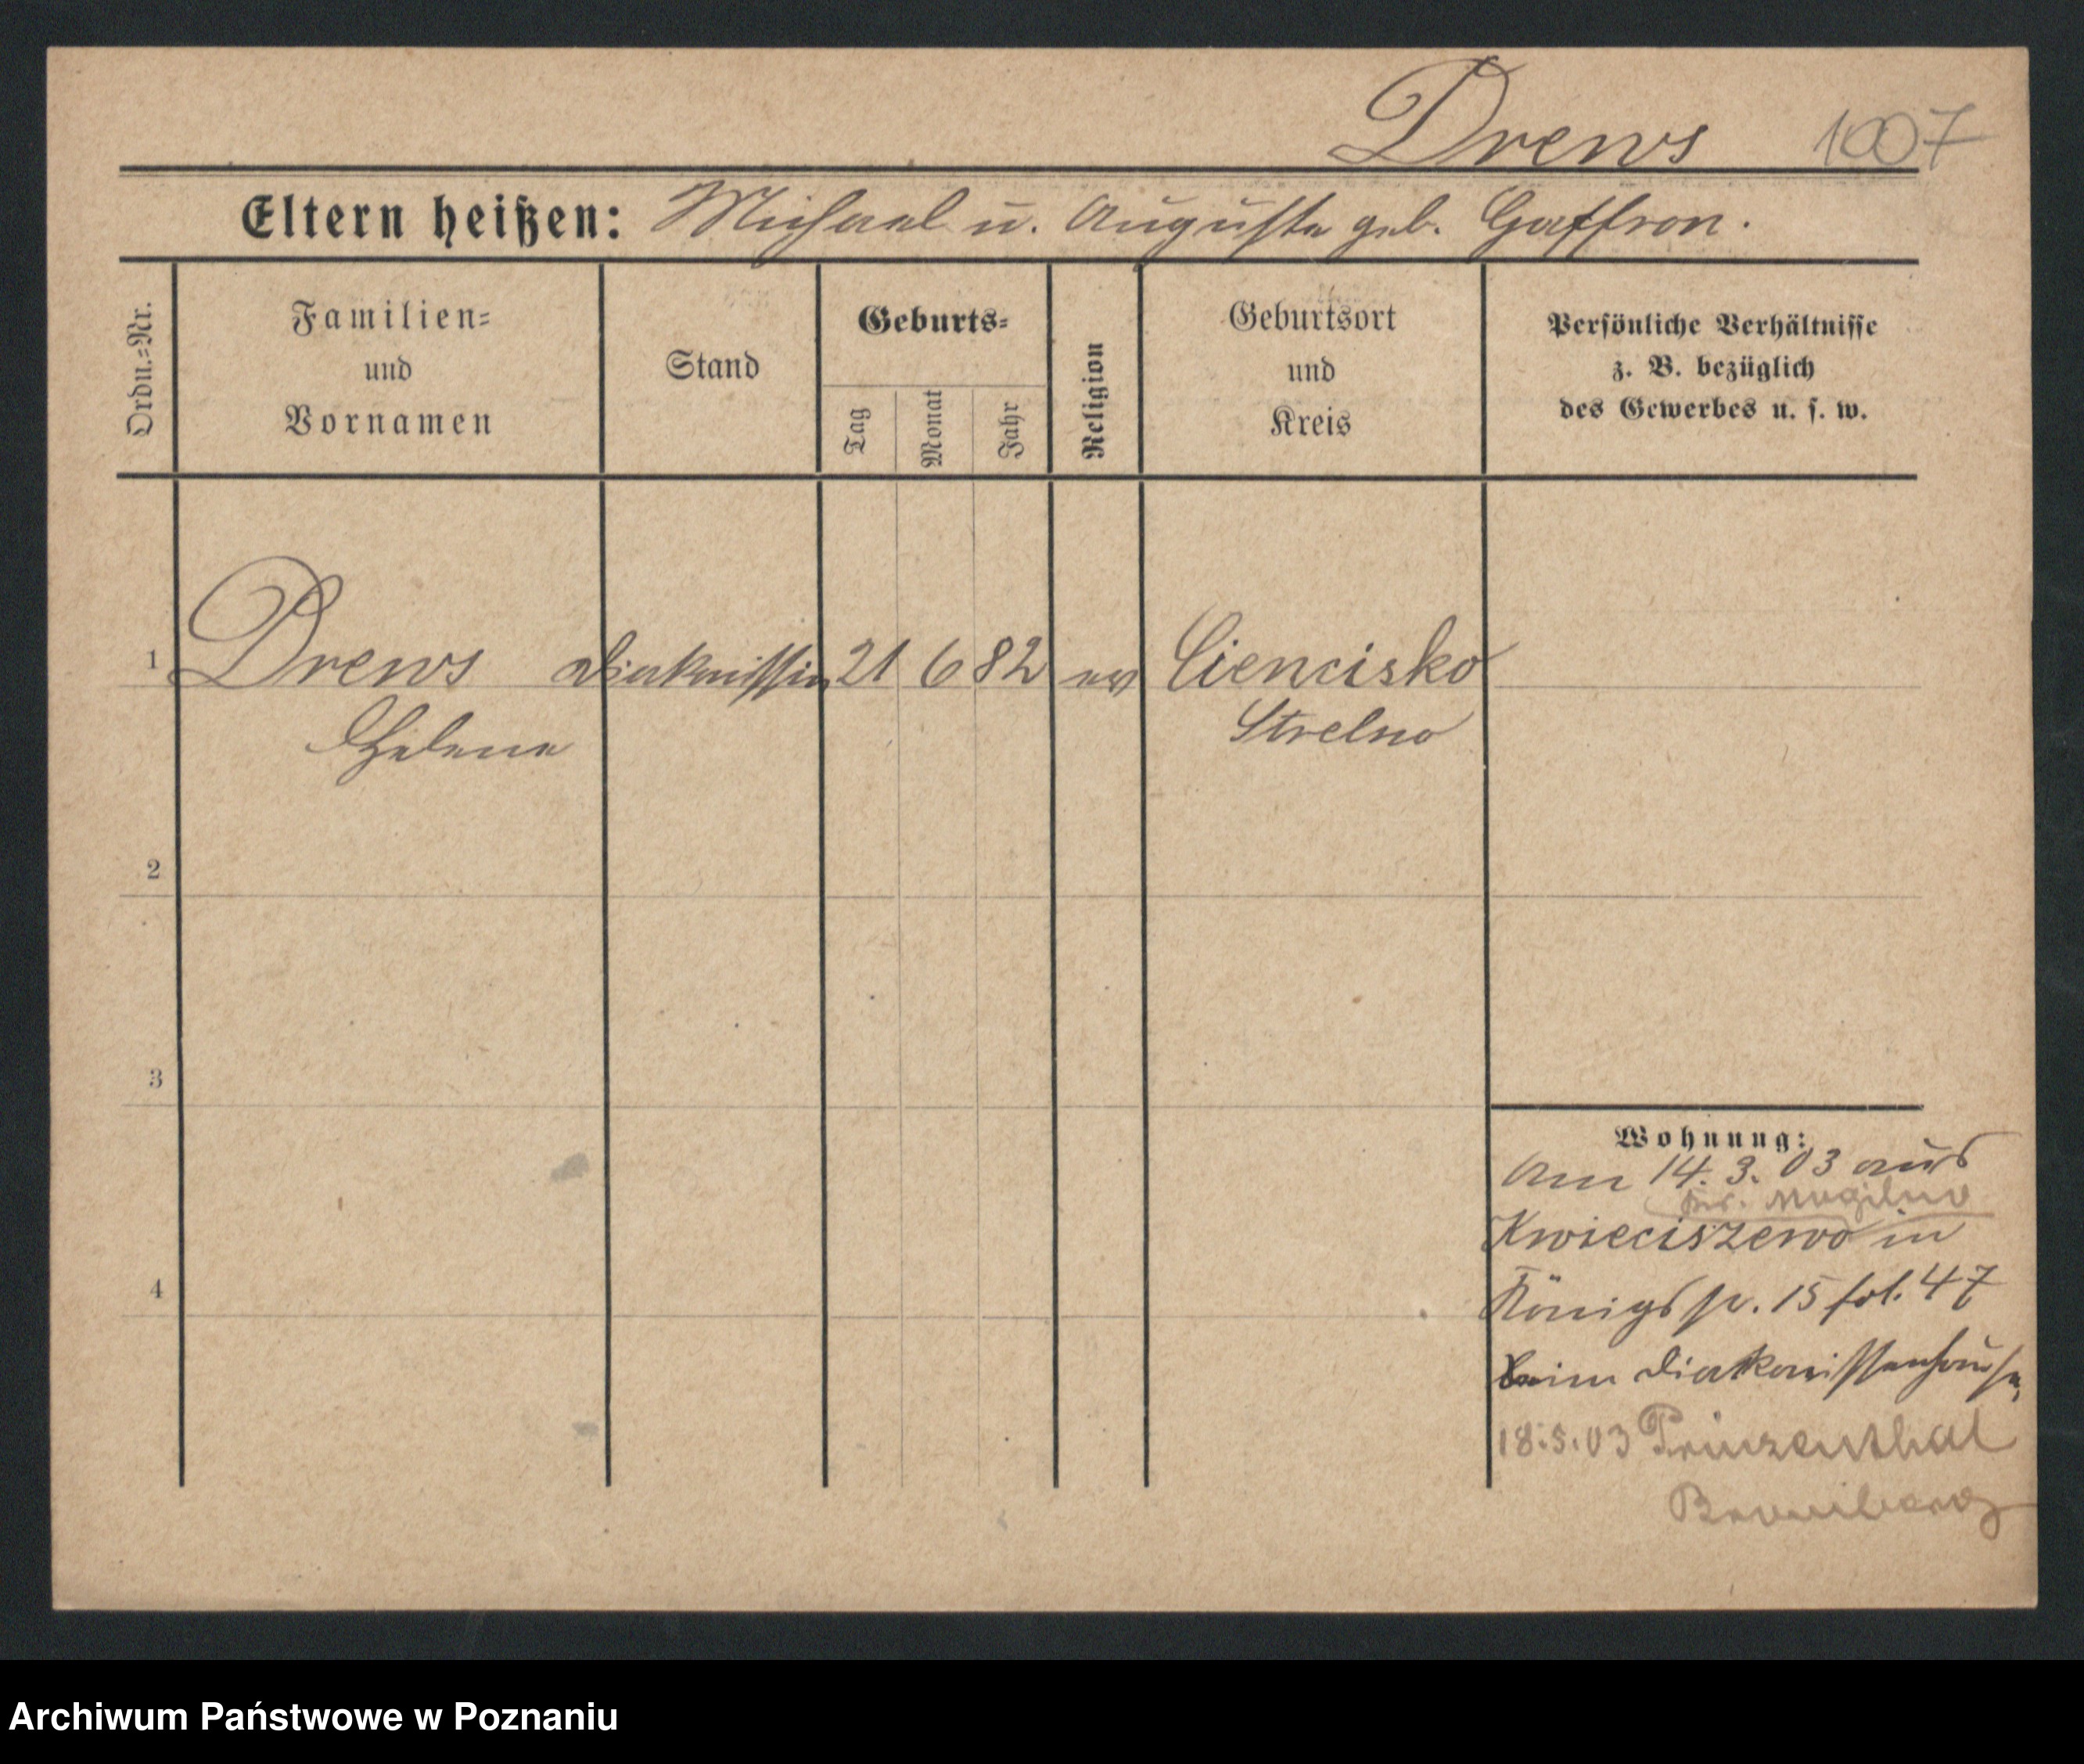 Drews 1007
Eltern heißen: Michael u. Auguste geb. Gaffron.
Ordn.=Nr.
Familien=
und
Vornamen
Stand
Geburts=
Tag
Monat
Jahr
Religion
Geburtsort
und
Kreis
Persönliche Verhältnisse
z. B. bezüglich
des Gewerbes u. s. w.
1 Drews Diakonissin 21 6 82 ev Ciencisko
Helene Strelno
2
3
4
Wohnung:
Am 14. 3. 03 aus
Krs. Mogilno
Kwieciszewo in
Königsstr. 15 fol. 47
beim Diakonissenhause,
18.5.03 Prinzenthal
Bromberg
Archiwum Państwowe w Poznaniu